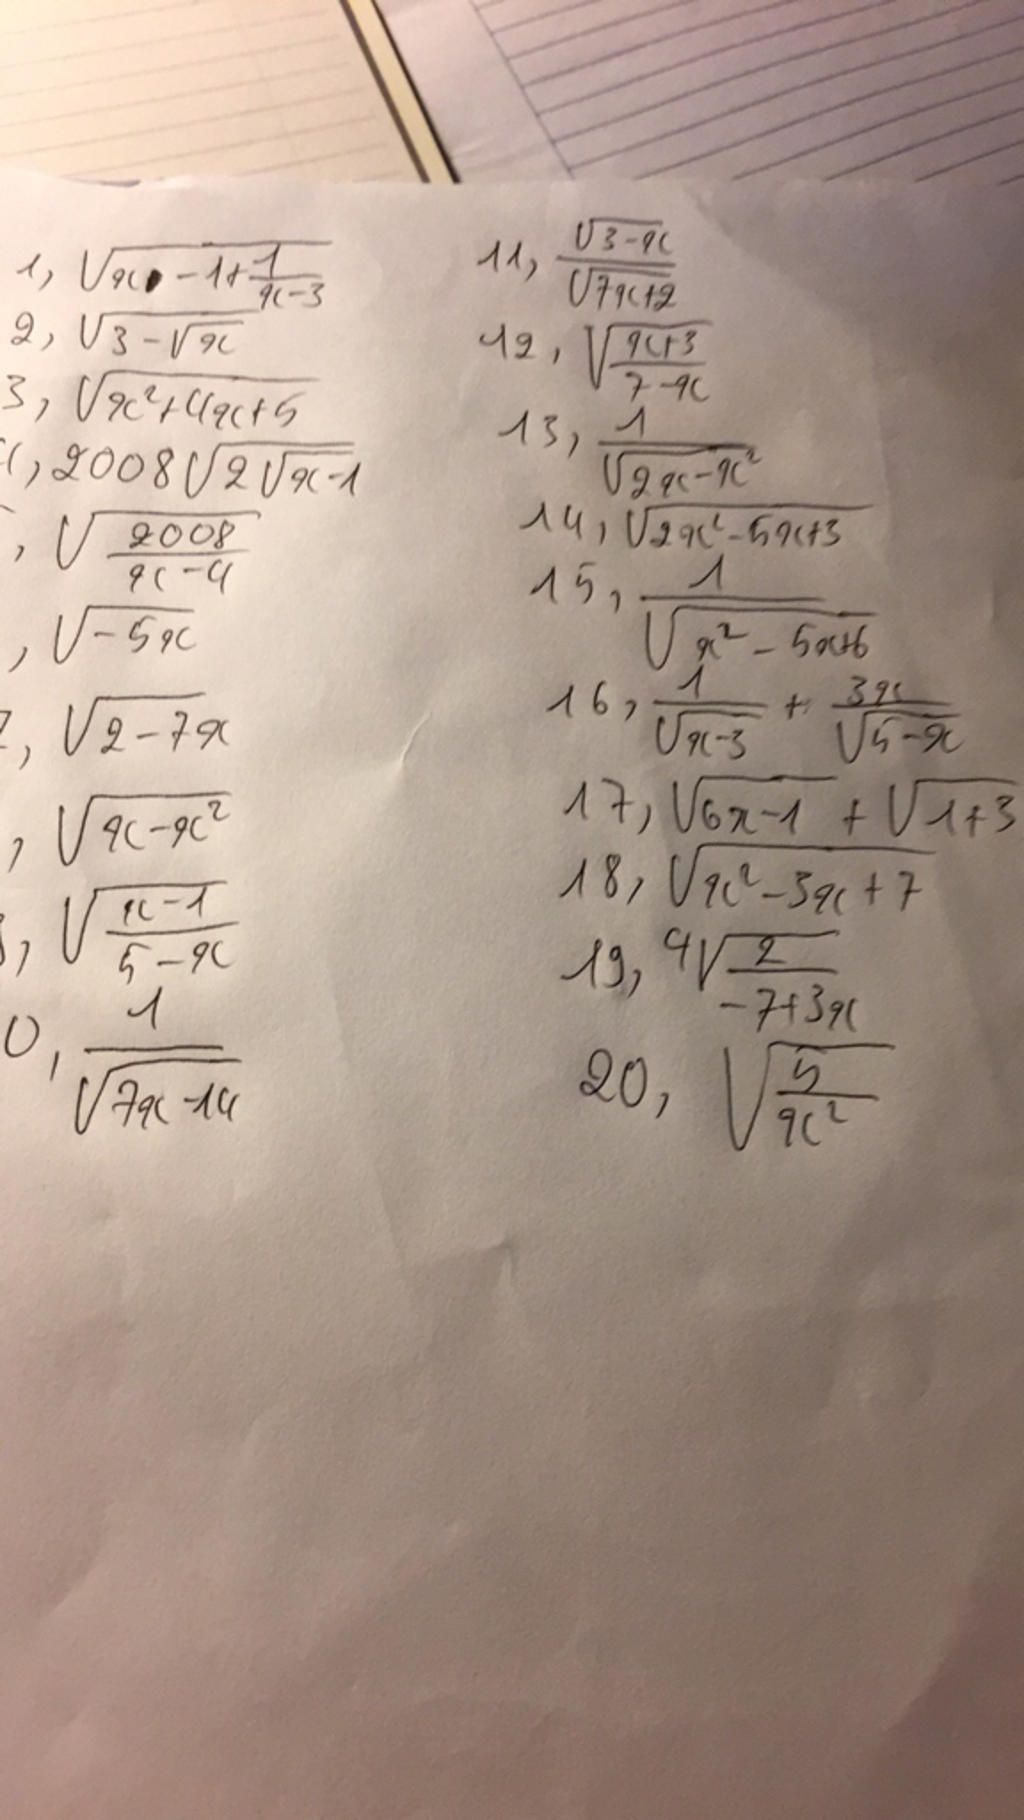 1, √(x - 1 + 1/(x-3))
2, √(3 - √x)
3, √(x² + 4x + 5)
, 2008√(2√(x-1))
, √(2008/(x-4))
, √(-5x)
, √(2-7x)
, √(x-x²)
, √((x-1)/(5-x))
0, 1/√(7x-14)
11, √(3-x)/√(7x+2)
12, √((x+3)/(7-x))
13, 1/√(2x-x²)
14, √(2x²-5x+3)
15, 1/√(x²-5x+6)
16, 1/√(x-3) + 3x/√(5-x)
17, √(6x-1) + √(1+3
18, √(x²-3x+7)
19, ⁴√(2/(-7+3x))
20, √(5/x²)